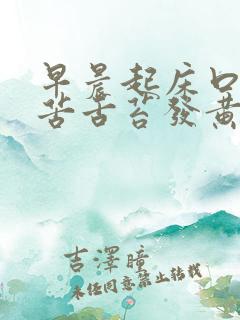 早晨起床口
苦舌苔發黃
吉澤瞳
未经同意禁止转载